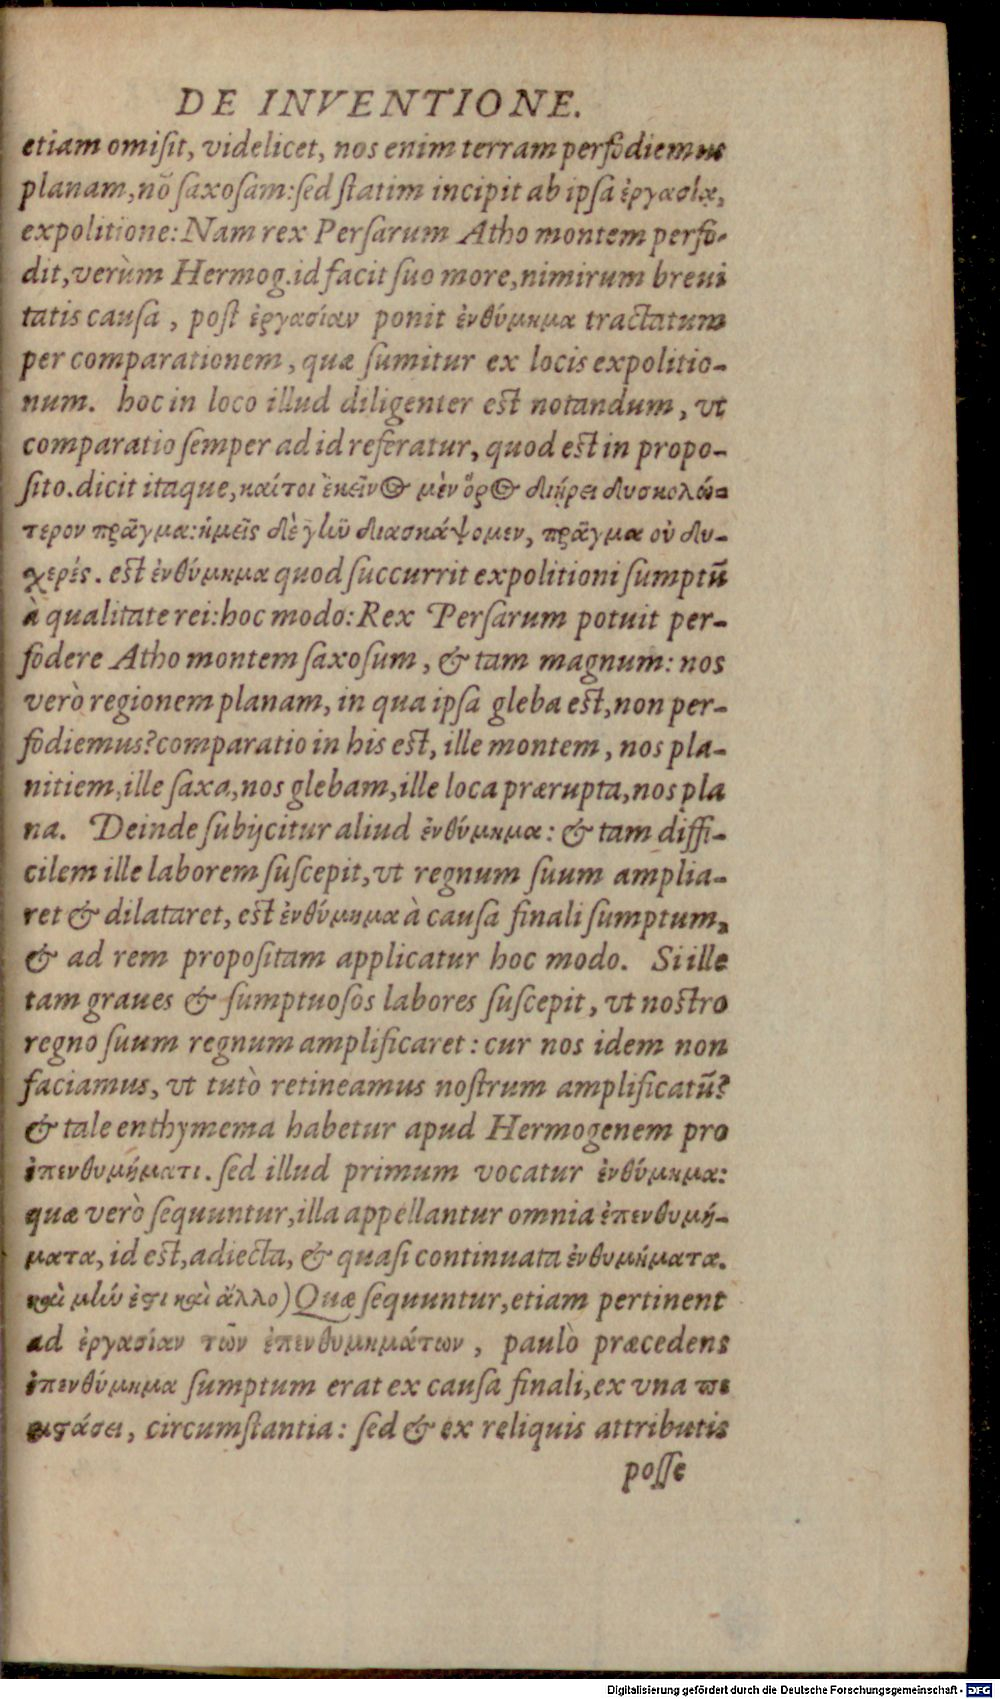 DE INVENTIONE.
etiam omiſit, videlicet, nos enim terram perfodiemus
planam, nõ ſaxoſam: ſed ſtatim incipit ab ipſa ἐργασίᾳ,
expolitione: Nam rex Perſarum Atho montem perfo-
dit, verùm Hermog. id facit ſuo more, nimirum breui
tatis cauſa, poſt ἐργασίαν ponit ἐνθύμημα tractatum
per comparationem, quæ ſumitur ex locis expolitio-
num. hoc in loco illud diligenter eſt notandum, vt
comparatio ſemper ad id referatur, quod eſt in propo-
ſito. dicit itaque, καίτοι ἐκεῖνος μὲν ὄρος διῄρει δυσκολώ-
τερον πρᾶγμα: ἡμεῖς δὲ γῆν διασκάψομεν, πρᾶγμα οὐ δυ-
χερές. eſt ἐνθύμημα quod ſuccurrit expolitioni ſumptũ
à qualitate rei: hoc modo: Rex Perſarum potuit per-
fodere Atho montem ſaxoſum, & tam magnum: nos
verò regionem planam, in qua ipſa gleba eſt, non per-
fodiemus? comparatio in his eſt, ille montem, nos pla-
nitiem, ille ſaxa, nos glebam, ille loca prærupta, nos pla
na. Deinde ſubijcitur aliud ἐνθύμημα: & tam diffi-
cilem ille laborem ſuſcepit, vt regnum ſuum amplia-
ret & dilataret, eſt ἐνθύμημα à cauſa finali ſumptum,
& ad rem propoſitam applicatur hoc modo. Si ille
tam graues & ſumptuoſos labores ſuſcepit, vt noſtro
regno ſuum regnum amplificaret: cur nos idem non
faciamus, vt tutò retineamus noſtrum amplificatũ?
& tale enthymema habetur apud Hermogenem pro
ἐπενθυμήματι. ſed illud primum vocatur ἐνθύμημα:
quæ verò ſequuntur, illa appellantur omnia ἐπενθυμή-
ματα, id eſt, adiecta, & quaſi continuata ἐνθυμήματα.
καὶ μὴν ἔτι καὶ ἄλλο) Quæ ſequuntur, etiam pertinent
ad ἐργασίαν τῶν ἐπενθυμημάτων, paulò præcedens
ἐπενθύμημα ſumptum erat ex cauſa finali, ex vna πε
ριστάσει, circumſtantia: ſed & ex reliquis attributis
poſſe
Digitalisierung gefördert durch die Deutsche Forschungsgemeinschaft - DFG